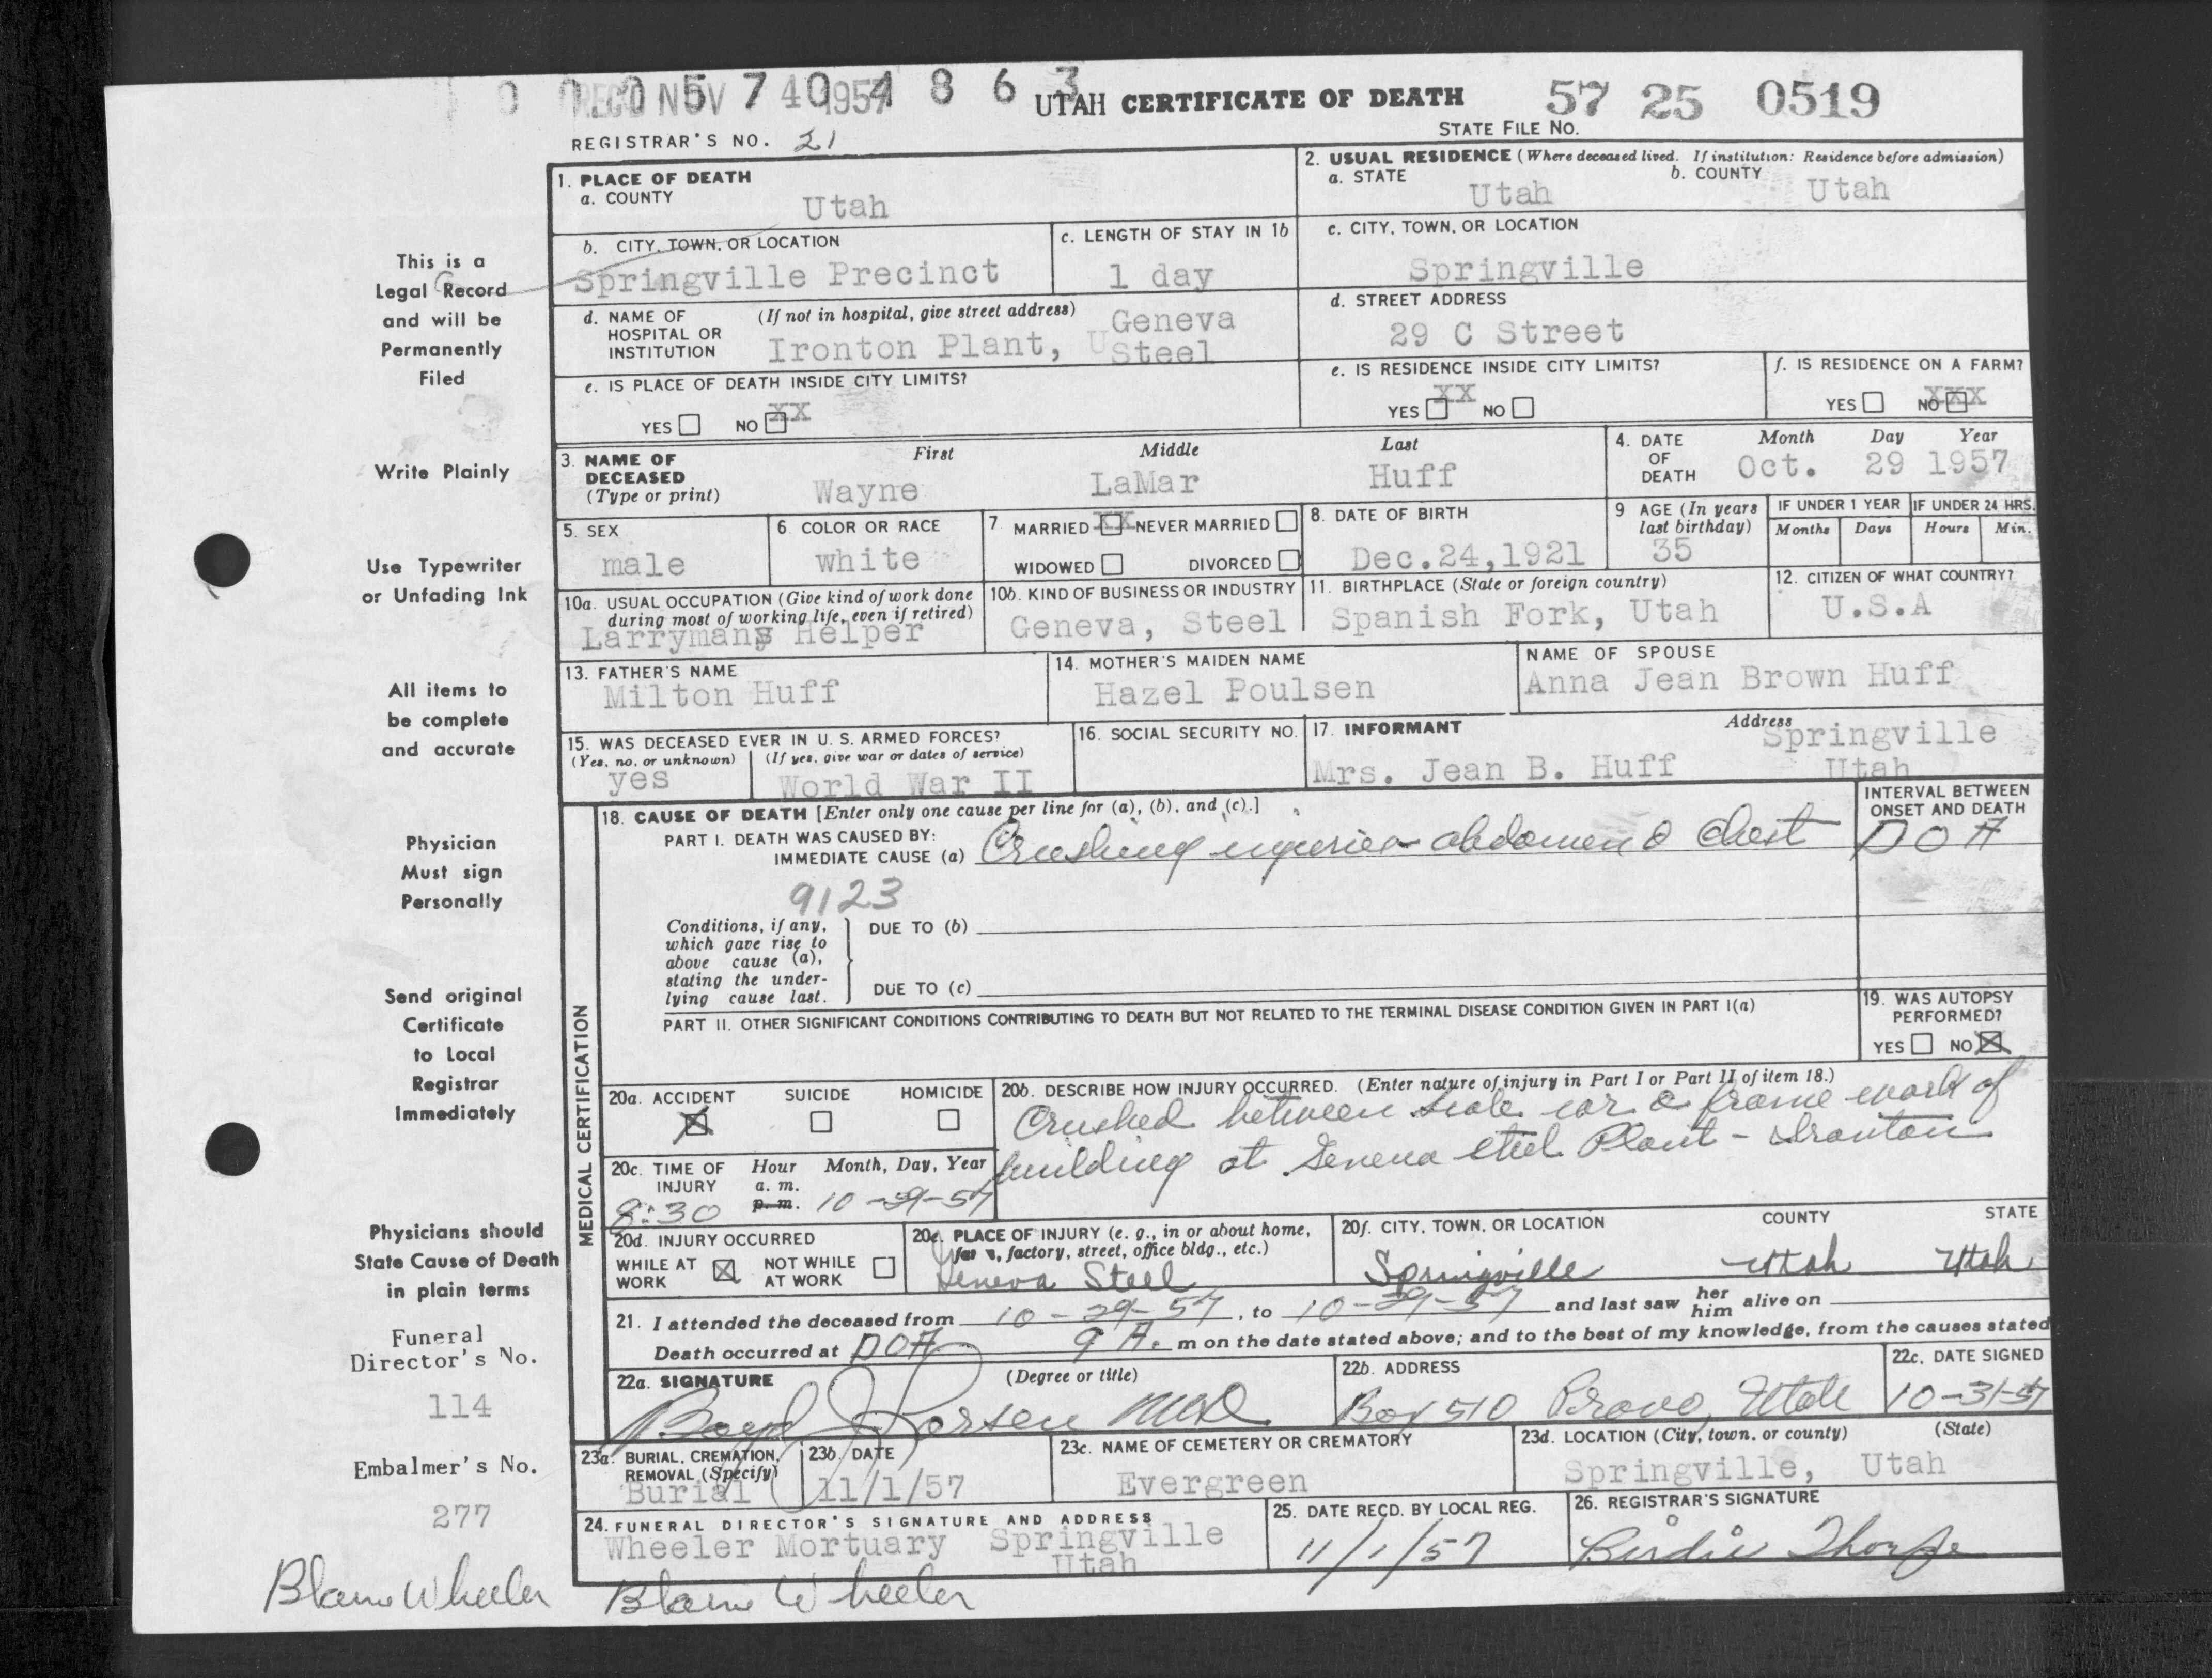 REC'D NOV 4 1957
0 0 0 5 7 0 4 8 6 3
UTAH CERTIFICATE OF DEATH
57 25 0519
STATE FILE NO.
REGISTRAR'S NO. 21
1. PLACE OF DEATH
a. COUNTY
Utah
2. USUAL RESIDENCE (Where deceased lived. If institution: Residence before admission)
a. STATE
Utah
b. COUNTY
Utah
b. CITY, TOWN, OR LOCATION
Springville Precinct
c. LENGTH OF STAY IN 1b
1 day
c. CITY, TOWN, OR LOCATION
Springville
d. NAME OF HOSPITAL OR INSTITUTION
(If not in hospital, give street address)
Geneva
Ironton Plant, U Steel
d. STREET ADDRESS
29 C Street
e. IS PLACE OF DEATH INSIDE CITY LIMITS?
YES NO XX
e. IS RESIDENCE INSIDE CITY LIMITS?
YES XX NO
f. IS RESIDENCE ON A FARM?
YES NO XXX
3. NAME OF DECEASED (Type or print)
First Middle Last
Wayne LaMar Huff
4. DATE OF DEATH
Month Day Year
Oct. 29 1957
5. SEX
male
6. COLOR OR RACE
white
7. MARRIED XX NEVER MARRIED
WIDOWED DIVORCED
8. DATE OF BIRTH
Dec.24,1921
9 AGE (In years last birthday)
35
IF UNDER 1 YEAR
Months Days
IF UNDER 24 HRS.
Hours Min.
10a. USUAL OCCUPATION (Give kind of work done during most of working life, even if retired)
Larrymans Helper
10b. KIND OF BUSINESS OR INDUSTRY
Geneva, Steel
11. BIRTHPLACE (State or foreign country)
Spanish Fork, Utah
12. CITIZEN OF WHAT COUNTRY?
U.S.A
13. FATHER'S NAME
Milton Huff
14. MOTHER'S MAIDEN NAME
Hazel Poulsen
NAME OF SPOUSE
Anna Jean Brown Huff
15. WAS DECEASED EVER IN U. S. ARMED FORCES?
(Yes, no, or unknown) (If yes, give war or dates of service)
yes World War II
16. SOCIAL SECURITY NO.
17. INFORMANT
Mrs. Jean B. Huff
Address
Springville
Utah
MEDICAL CERTIFICATION
18. CAUSE OF DEATH [Enter only one cause per line for (a), (b), and (c).]
INTERVAL BETWEEN ONSET AND DEATH
PART I. DEATH WAS CAUSED BY:
IMMEDIATE CAUSE (a) Crushing injuries abdomen & Chest
DOA
9123
Conditions, if any, which gave rise to above cause (a), stating the underlying cause last.
DUE TO (b)
DUE TO (c)
PART II. OTHER SIGNIFICANT CONDITIONS CONTRIBUTING TO DEATH BUT NOT RELATED TO THE TERMINAL DISEASE CONDITION GIVEN IN PART I(a)
19. WAS AUTOPSY PERFORMED?
YES NO X
20a. ACCIDENT X SUICIDE HOMICIDE
20b. DESCRIBE HOW INJURY OCCURRED. (Enter nature of injury in Part I or Part II of item 18.)
Crushed between scale car & frame work of
building at Geneva Steel Plant - Ironton
20c. TIME OF INJURY
Hour Month, Day, Year
a. m.
p. m.
8:30 10-29-57
20d. INJURY OCCURRED
WHILE AT WORK X NOT WHILE AT WORK
20e. PLACE OF INJURY (e. g., in or about home, farm, factory, street, office bldg., etc.)
Geneva Steel
20f. CITY, TOWN, OR LOCATION COUNTY STATE
Springville Utah Utah
21. I attended the deceased from 10-29-57, to 10-29-57 and last saw her him alive on
Death occurred at DOA 9 A. m on the date stated above; and to the best of my knowledge, from the causes stated
22a. SIGNATURE (Degree or title)
Boyd J Larsen MD
22b. ADDRESS
Box 510 Provo, Utah
22c. DATE SIGNED
10-31-57
23a. BURIAL, CREMATION, REMOVAL (Specify)
Burial
23b. DATE
11/1/57
23c. NAME OF CEMETERY OR CREMATORY
Evergreen
23d. LOCATION (City, town, or county) (State)
Springville, Utah
24. FUNERAL DIRECTOR'S SIGNATURE AND ADDRESS
Wheeler Mortuary Springville
Utah
25. DATE RECD. BY LOCAL REG.
11/1/57
26. REGISTRAR'S SIGNATURE
Birdie Thorpe
Blaine Wheeler
This is a
Legal Record
and will be
Permanently
Filed
Write Plainly
Use Typewriter
or Unfading Ink
All items to
be complete
and accurate
Physician
Must sign
Personally
Send original
Certificate
to Local
Registrar
Immediately
Physicians should
State Cause of Death
in plain terms
Funeral
Director's No.
114
Embalmer's No.
277
Blaine Wheeler